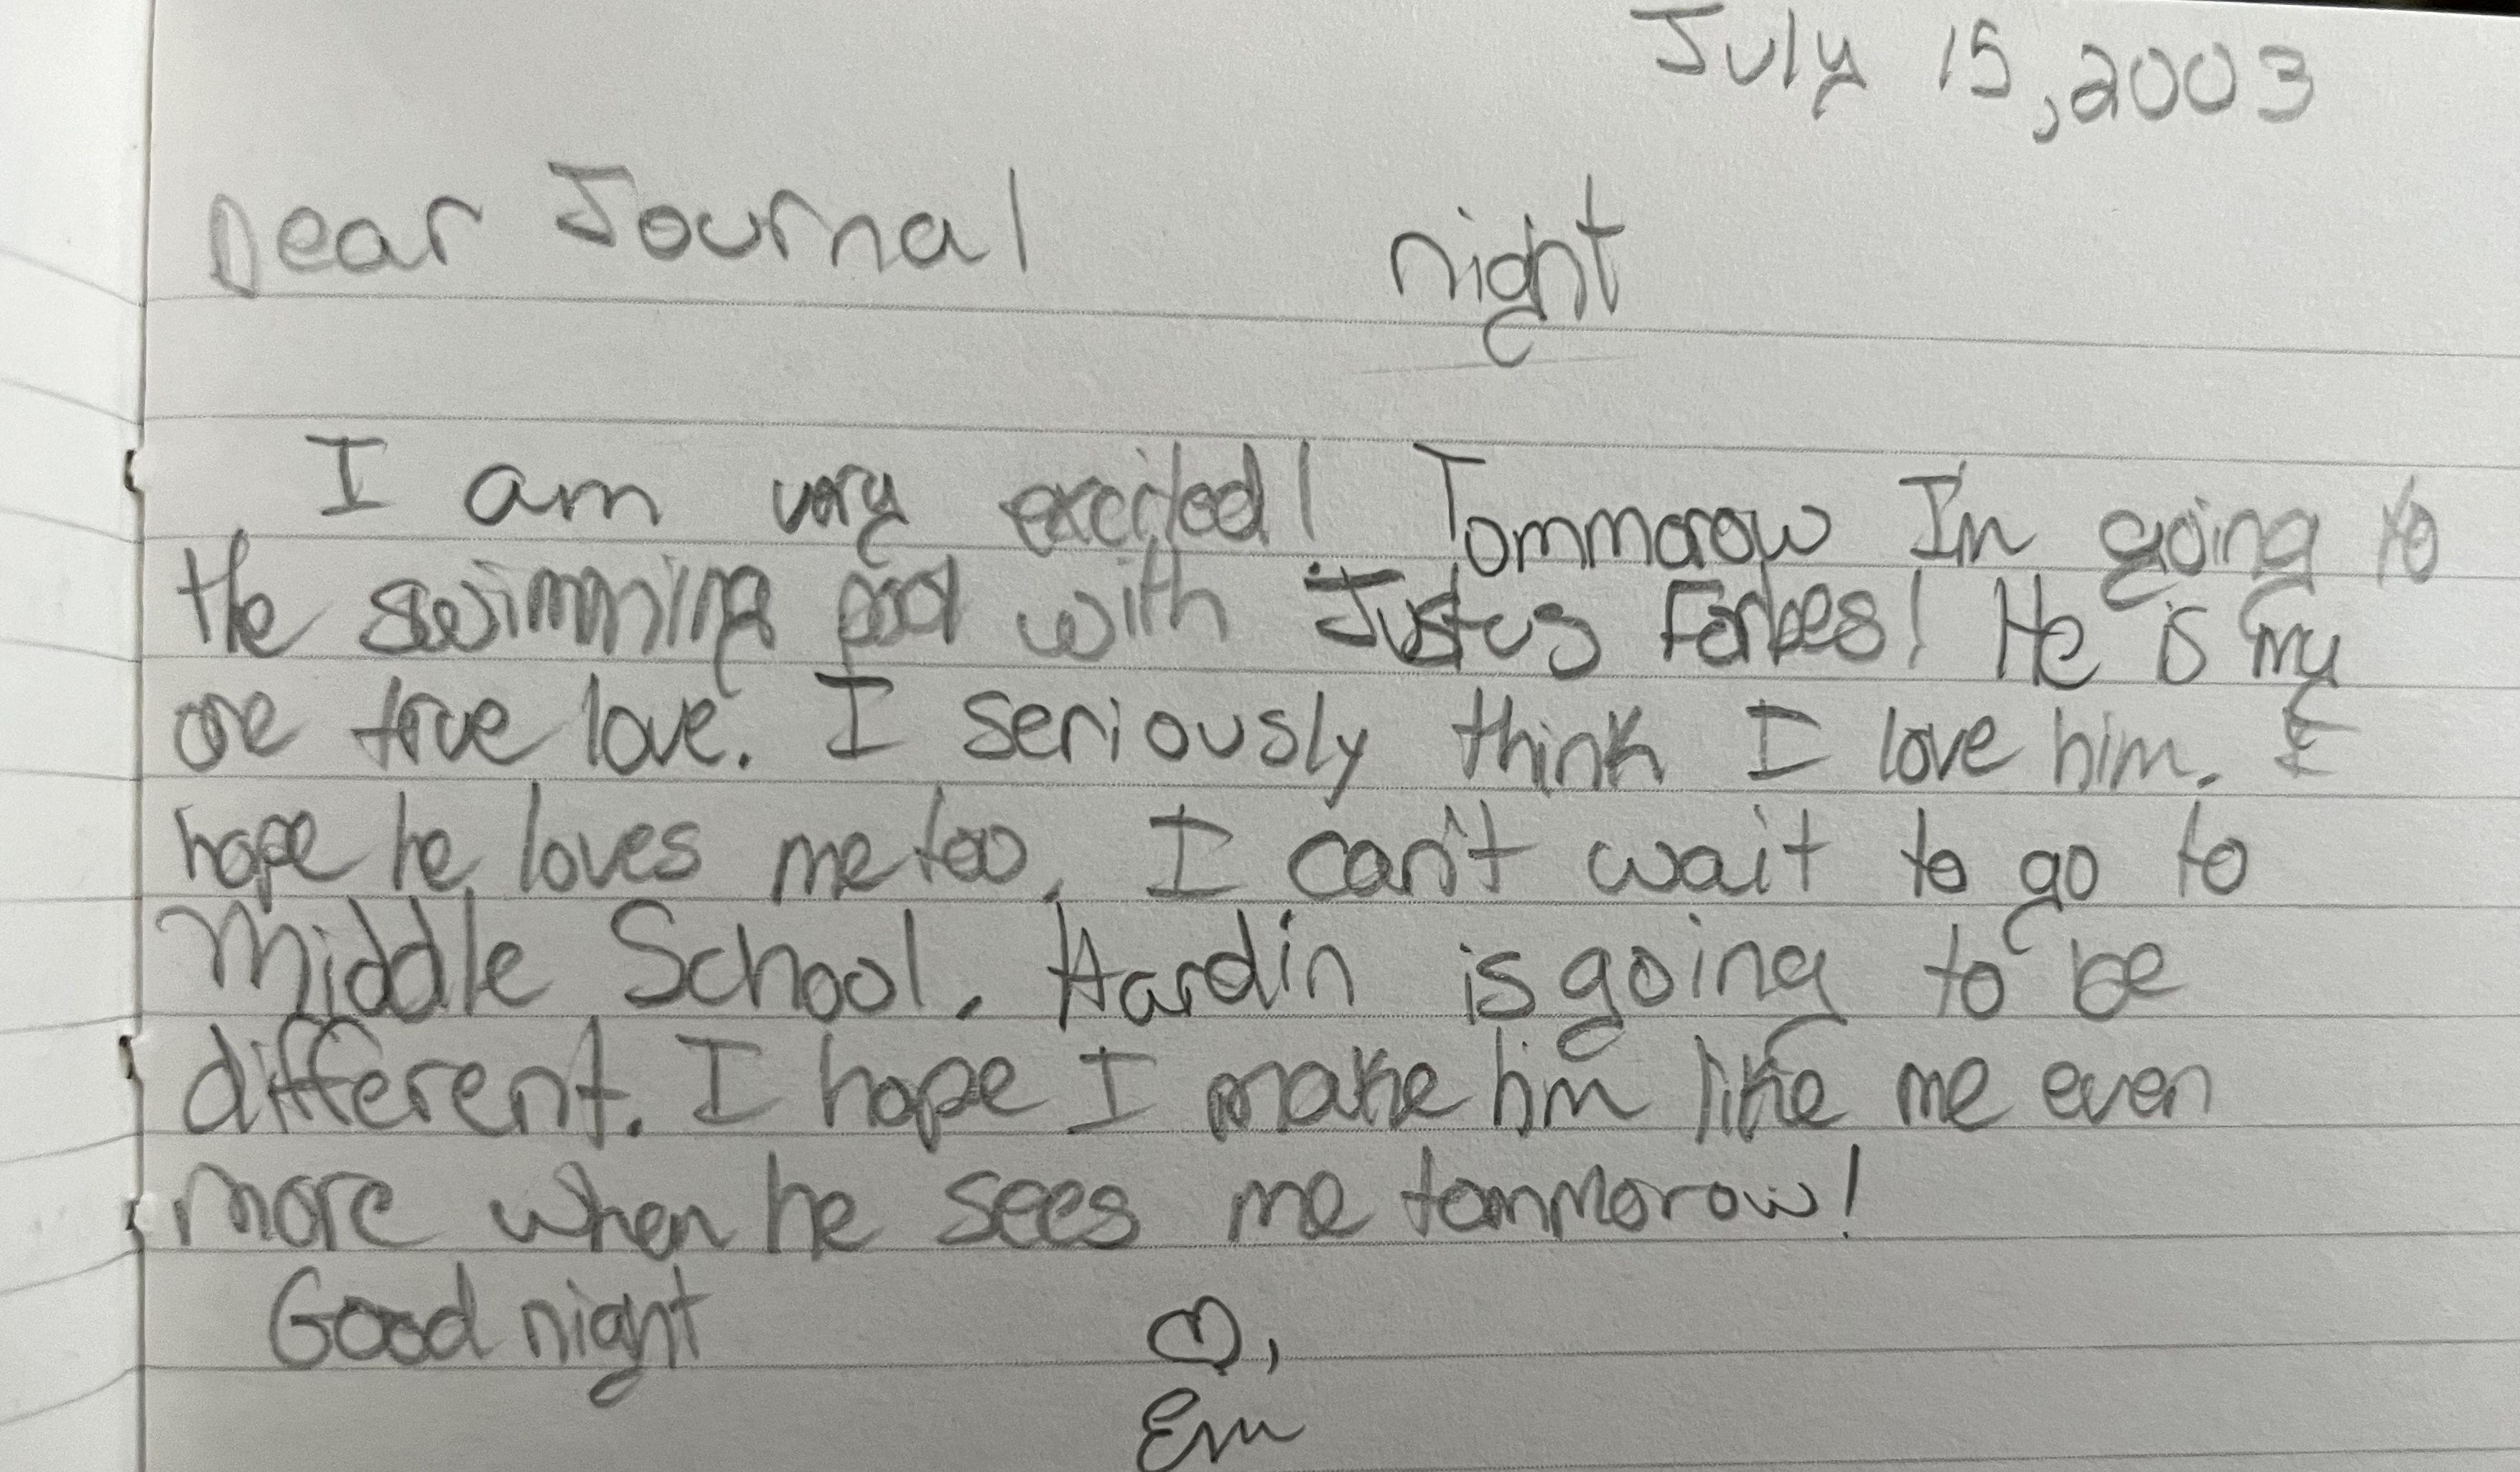 July 15, 2003
Dear Journal night
I am very excited! Tommorow I'm going to
the swimming pool with Justus Forbes! He is my
one true love. I seriously think I love him. I
hope he loves me too. I can't wait to go to
Middle School. Hardin is going to be
different. I hope I make him like me even
more when he sees me tommorow!
Good night ♡,
Em